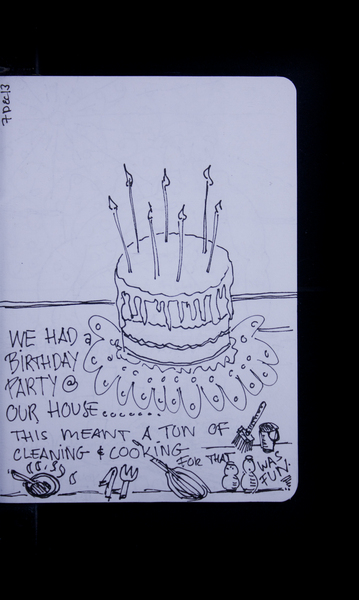 7 Dec 13
WE HAD a
BIRTHDAY
PARTY @
OUR HOUSE........
THIS MEANT A TON OF
CLEANING & COOKING FOR THAT
WAS
FUN.